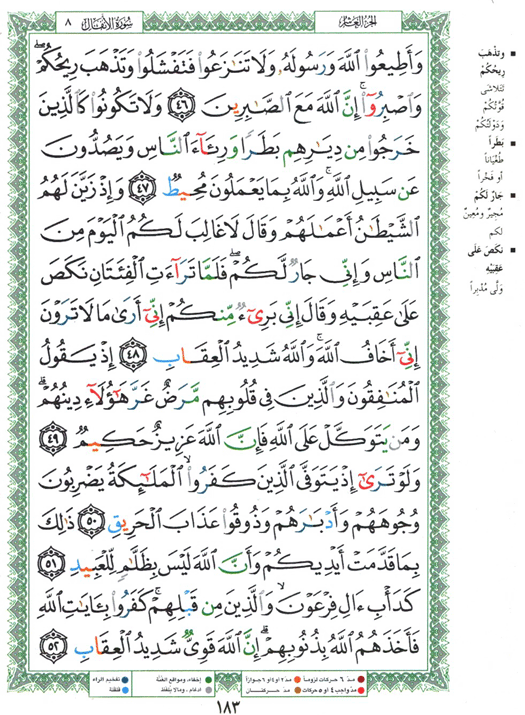 الجزء العاشر
سورة الأنفال ٨
وَأَطِيعُوا۟ ٱللَّهَ وَرَسُولَهُۥ وَلَا تَنَـٰزَعُوا۟ فَتَفْشَلُوا۟ وَتَذْهَبَ رِيحُكُمْۖ
وَٱصْبِرُوٓا۟ۚ إِنَّ ٱللَّهَ مَعَ ٱلصَّـٰبِرِينَ ٤٦ وَلَا تَكُونُوا۟ كَٱلَّذِينَ
خَرَجُوا۟ مِن دِيَـٰرِهِم بَطَرًا وَرِئَآءَ ٱلنَّاسِ وَيَصُدُّونَ
عَن سَبِيلِ ٱللَّهِۚ وَٱللَّهُ بِمَا يَعْمَلُونَ مُحِيطٌ ٤٧ وَإِذْ زَيَّنَ لَهُمُ
ٱلشَّيْطَـٰنُ أَعْمَـٰلَهُمْ وَقَالَ لَا غَالِبَ لَكُمُ ٱلْيَوْمَ مِنَ
ٱلنَّاسِ وَإِنِّى جَارٌ لَّكُمْۖ فَلَمَّا تَرَآءَتِ ٱلْفِئَتَانِ نَكَصَ
عَلَىٰ عَقِبَيْهِ وَقَالَ إِنِّى بَرِىٓءٌ مِّنكُمْ إِنِّىٓ أَرَىٰ مَا لَا تَرَوْنَ
إِنِّىٓ أَخَافُ ٱللَّهَۚ وَٱللَّهُ شَدِيدُ ٱلْعِقَابِ ٤٨ إِذْ يَقُولُ
ٱلْمُنَـٰفِقُونَ وَٱلَّذِينَ فِى قُلُوبِهِم مَّرَضٌ غَرَّ هَـٰٓؤُلَآءِ دِينُهُمْۗ
وَمَن يَتَوَكَّلْ عَلَى ٱللَّهِ فَإِنَّ ٱللَّهَ عَزِيزٌ حَكِيمٌ ٤٩
وَلَوْ تَرَىٰٓ إِذْ يَتَوَفَّى ٱلَّذِينَ كَفَرُوا۟ۙ ٱلْمَلَـٰٓئِكَةُ يَضْرِبُونَ
وُجُوهَهُمْ وَأَدْبَـٰرَهُمْ وَذُوقُوا۟ عَذَابَ ٱلْحَرِيقِ ٥٠ ذَٰلِكَ
بِمَا قَدَّمَتْ أَيْدِيكُمْ وَأَنَّ ٱللَّهَ لَيْسَ بِظَلَّـٰمٍ لِّلْعَبِيدِ ٥١
كَدَأْبِ ءَالِ فِرْعَوْنَۙ وَٱلَّذِينَ مِن قَبْلِهِمْۚ كَفَرُوا۟ بِـَٔايَـٰتِ ٱللَّهِ
فَأَخَذَهُمُ ٱللَّهُ بِذُنُوبِهِمْۗ إِنَّ ٱللَّهَ قَوِىٌّ شَدِيدُ ٱلْعِقَابِ ٥٢
وتذْهَبَ
رِيحُكُمْ
تتلاشى
قُوَّتُكُمْ
ودَوْلَتُكُمْ
بَطَراً
طُغْيَاناً
أو فَخْراً
جَارٌ لَكُمْ
مُجيرٌ ومُعينٌ
لكم
نَكَصَ عَلَى
عَقِبَيْهِ
وَلَّى مُدْبِراً
مدّ ٦ حركات لزوماً
مدّ ٢ أو ٤ أو ٦ جوازاً
مدّ واجب ٤ أو ٥ حركات
مدّ حركتان
إخفاء، ومواقع الغُنَّة
ادغام، وما لا يُلفَظ
تفخيم الراء
قلقلة
١٨٣